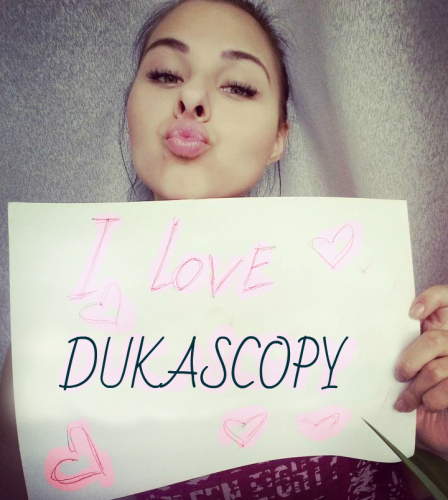 I LOVE
DUKASCOPY